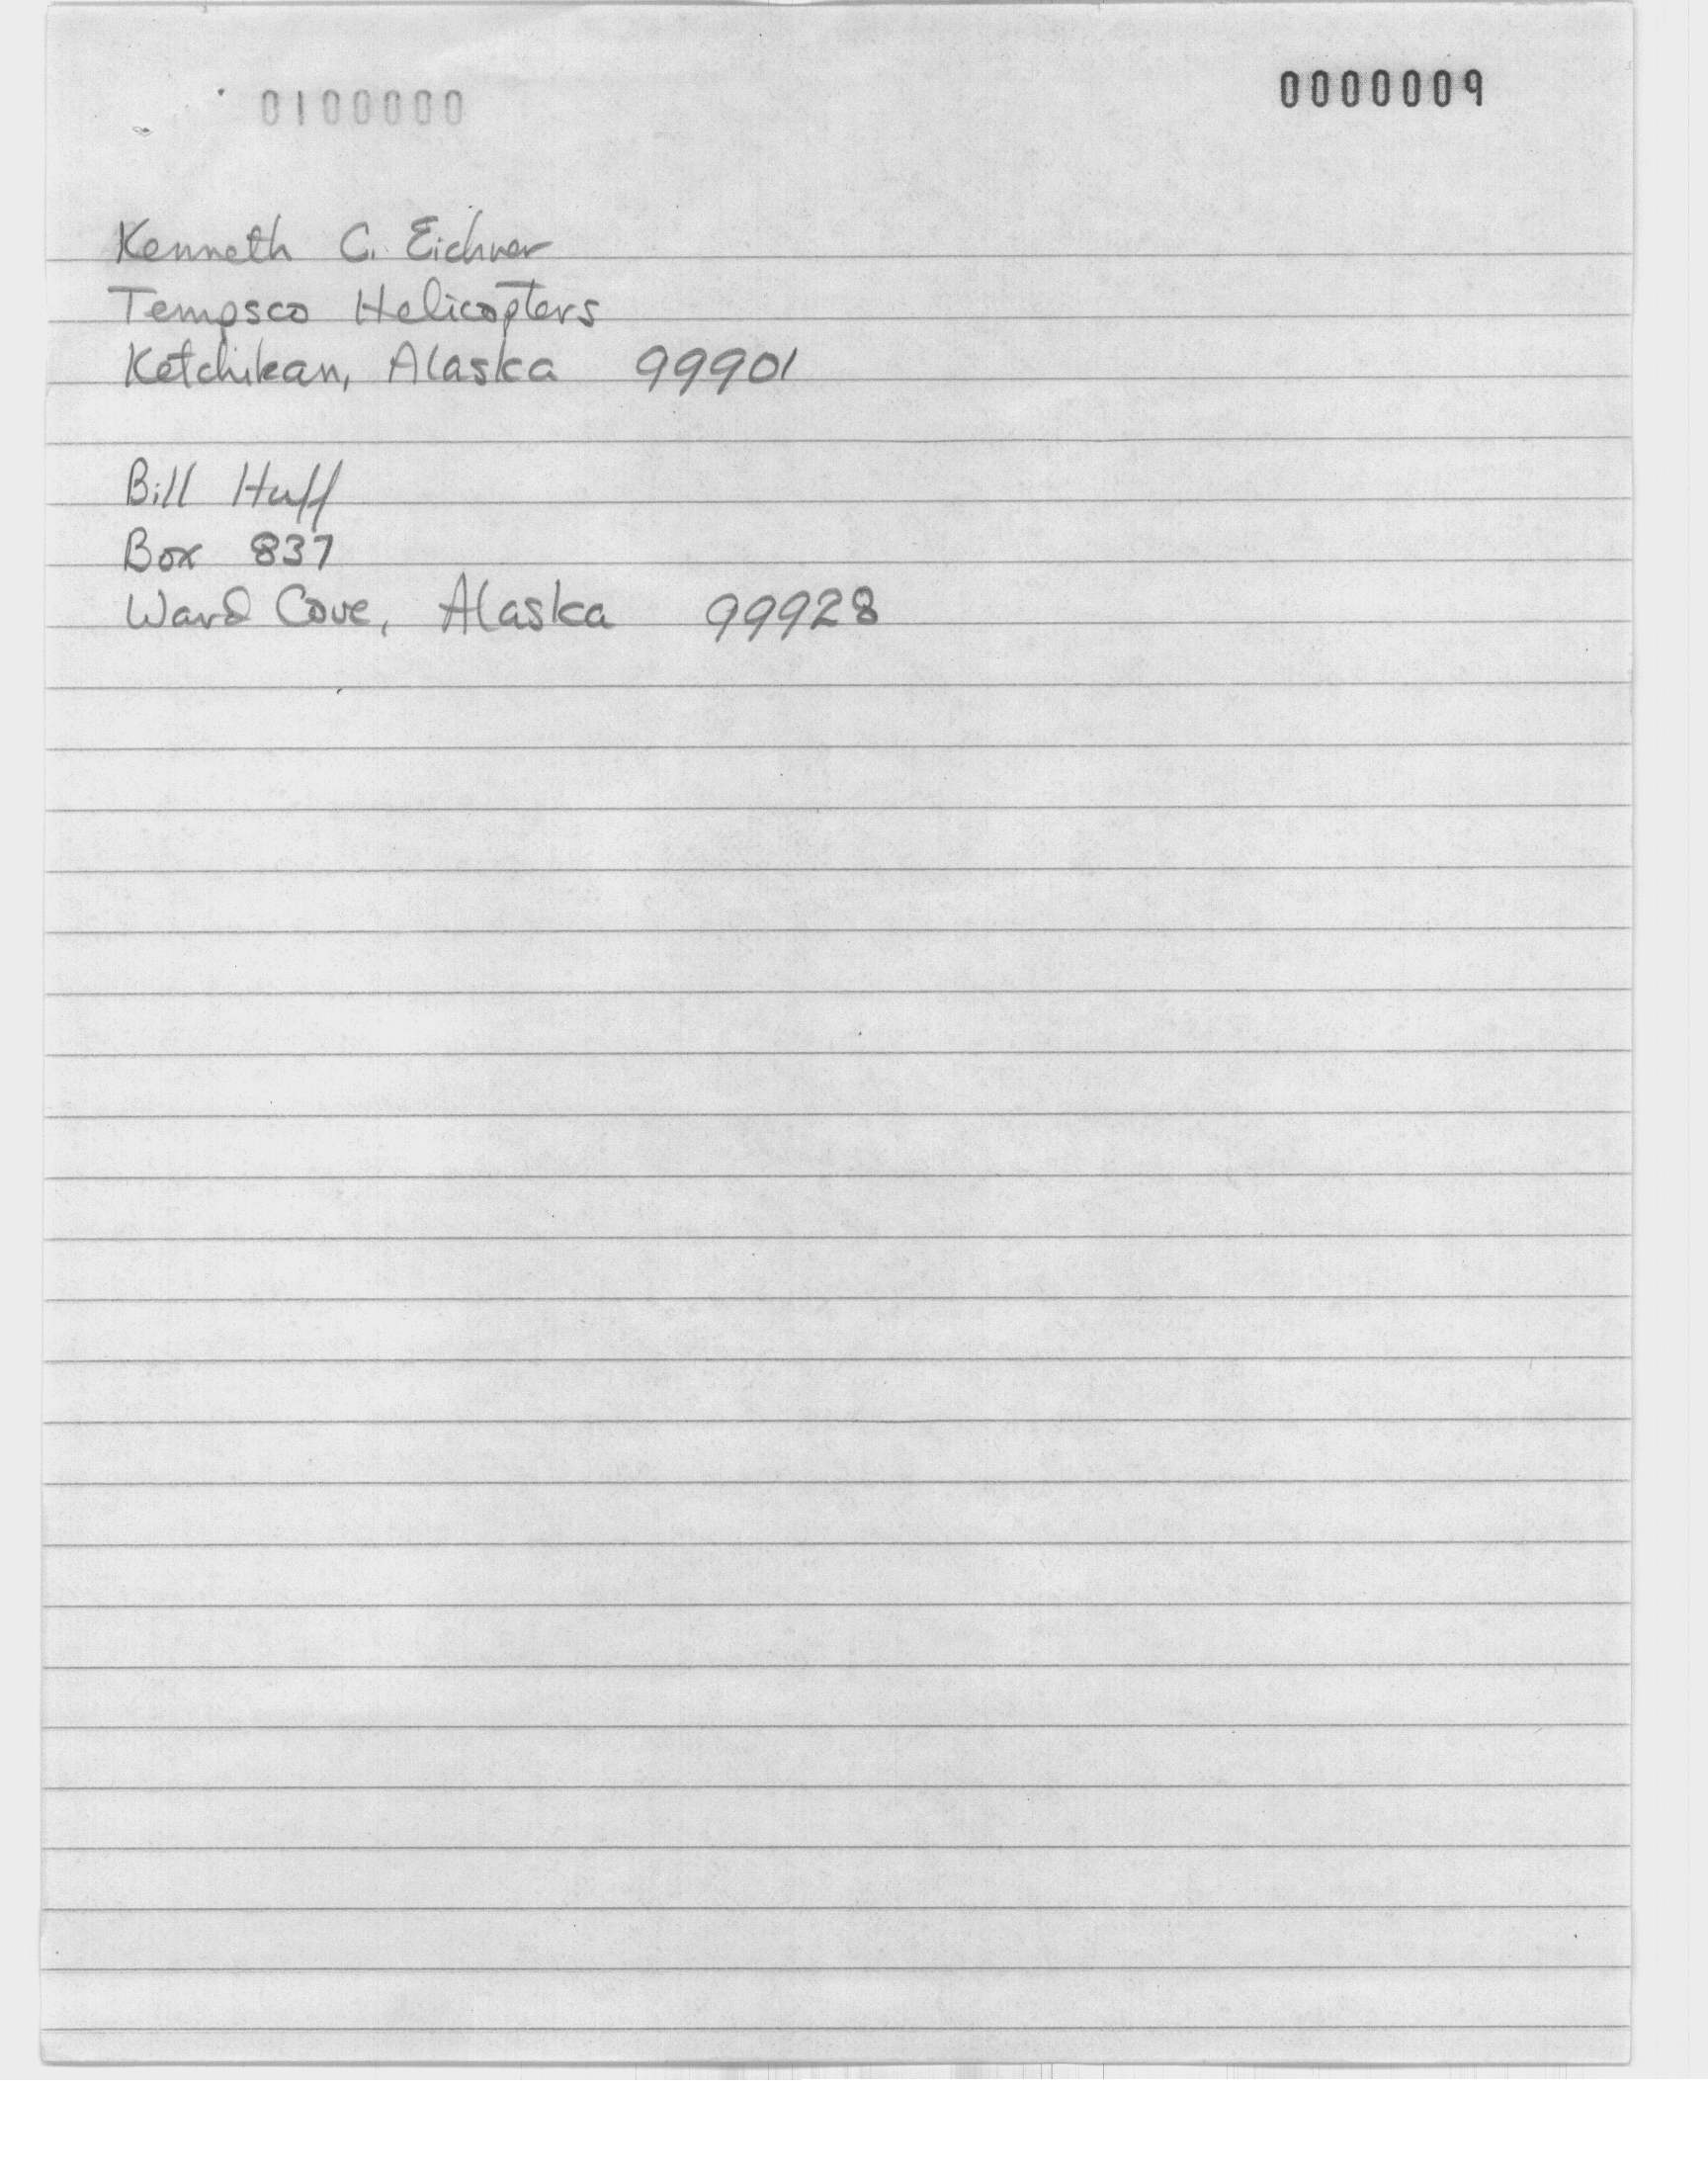 0000009
Kenneth C. Eichner
Tempsco Helicopters
Ketchikan, Alaska 99901
Bill Huff
Box 837
Ward Cove, Alaska 99928